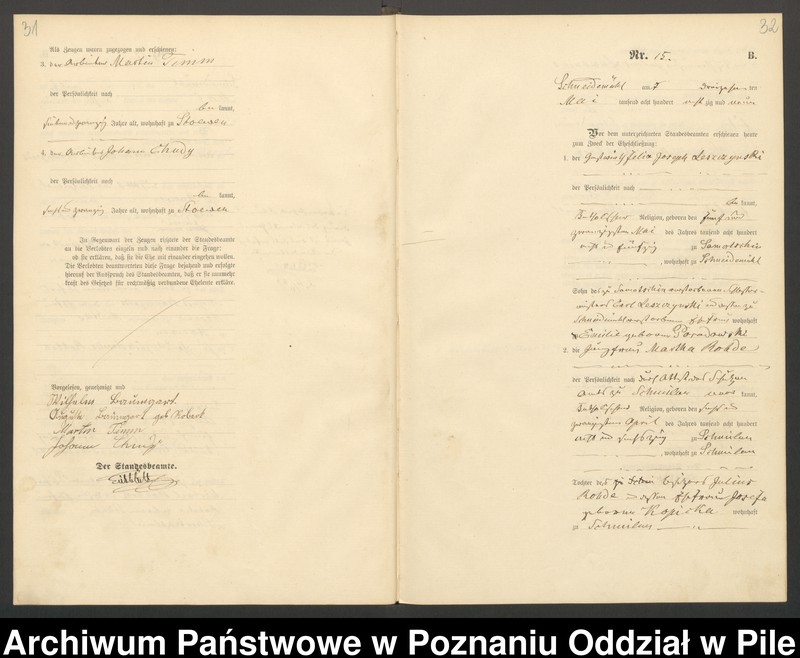 31
Als Zeugen waren zugezogen und erschienen:
3. der Arbeiter Martin Timm
der Persönlichkeit nach
be kannt,
siebenundzwanzig Jahre alt, wohnhaft zu Stoewen
4. der Arbeiter Johann Chudy
der Persönlichkeit nach
be kannt,
Jahre alt, wohnhaft zu Stoewen
In Gegenwart der Zeugen richtete der Standesbeamte
an die Verlobten einzeln und nach einander die Frage:
ob sie erklären, daß sie die Ehe mit einander eingehen wollen.
Die Verlobten beantworteten diese Frage bejahend und erfolgte
hierauf der Ausspruch des Standesbeamten, daß er sie nunmehr
kraft des Gesetzes für rechtmäßig verbundene Eheleute erkläre.
Vorgelesen, genehmigt und
Wilhelm Baumgart
Auguste Baumgart geb. Robert
Martin Timm
Johann Chudy
Der Standesbeamte.
32
Nr. 15. B.
Schneidemühl am dreizehn ten
Mai tausend acht hundert acht zig und neun
Vor dem unterzeichneten Standesbeamten erschienen heute
zum Zweck der Eheschließung:
1. der Gastwirth Felix Joseph Leszczynski
der Persönlichkeit nach
be kannt,
katholischer Religion, geboren den fünf und
zwanzigsten Mai des Jahres tausend acht hundert
acht und fünfzig zu Samotschin
, wohnhaft zu Schneidemühl
Sohn des zu Samotschin verstorbenen
Carl Leszczynski und dessen zu
Schneidemühl verstorbenen Ehefrau wohnhaft
Emilie geborene Poradowski
2. die Jungfrau Martha Rohde
der Persönlichkeit nach durch Attest des Schulzen
amts zu kannt,
katholischer Religion, geboren den sechs und
zwanzigsten April des Jahres tausend acht hundert
acht und sechszig zu
, wohnhaft zu
Tochter des Besitzers Julius
Rohde und dessen Ehefrau Josefa
geborene Kopicka wohnhaft
zu
Archiwum Państwowe w Poznaniu Oddział w Pile